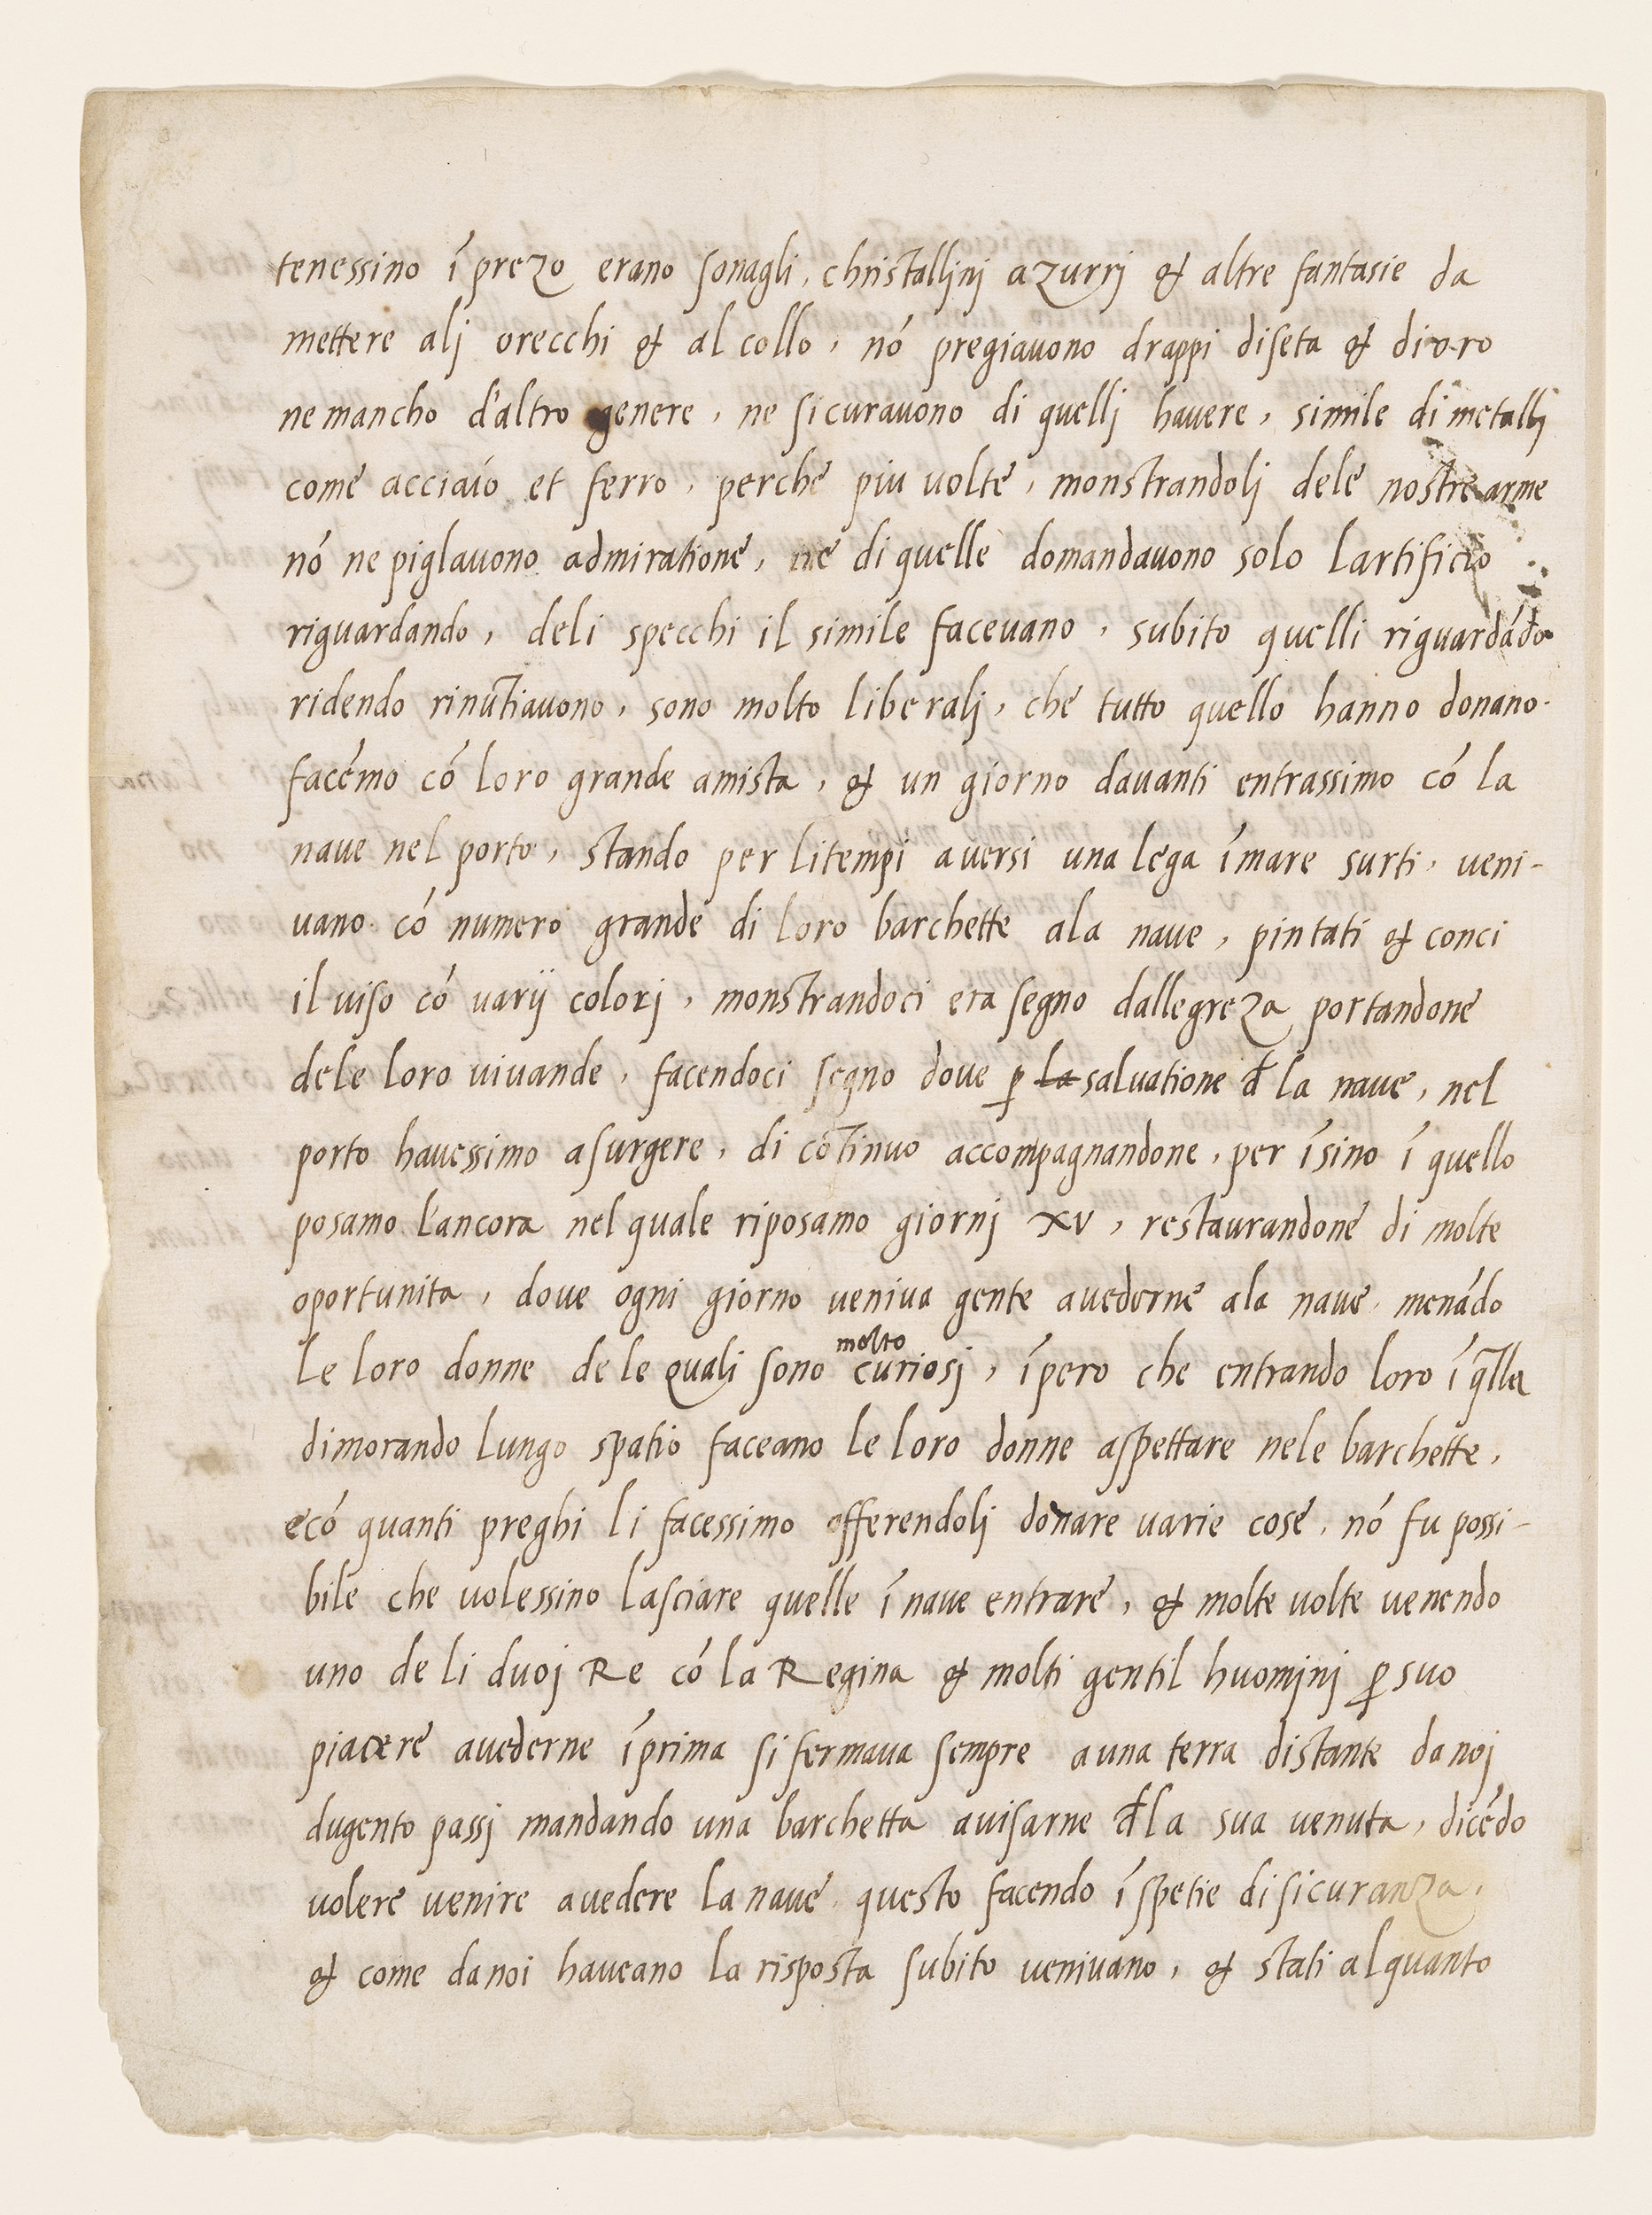 tenessino ī prezo erano sonagli, christallinj azurrj & altre fantasie da
mettere alj orecchi & al collo, nó pregiavono drappi diseta & di oro
ne mancho d'altro genere, ne si curavono di quellj havere, simile di metallj
come acciaío et ferro, perche piu volte, monstrandolj dele nostre arme
nó ne piglavono admiratione, ne di quelle domandavono solo lartificio
riguardando, deli specchi il simile facevano, subito quelli riguardādo
ridendo rinūtiavono, sono molto liberalj, che tutto quello hanno donano.
facēmo có loro grande amista, & un giorno davanti entrassimo có la
nave nel porto, stando per litempi aversi una lega īmare surti, veni-
vano có numero grande di loro barchette ala nave, pintati & conci
il viso có varij colorj, monstrandoci era segno dallegreza portandone
dele loro vivande, facendoci segno dove ꝑ la salvatione đ la nave, nel
porto havessimo asurgere, di cōtinuo accompagnandone, per īsino ī quello
posamo l'ancora nel quale riposamo giornj XV, restaurandone di molte
oportunita, dove ogni giorno veniva gente avederne ala nave, menādo
le loro donne dele qualj sono molto curiosj, īpero che entrando loro ī q̄lla
dimorando lungo spatio faceano le loro donne aspettare nele barchette,
ecó quanti preghi li facessimo offerendolj donare varie cose, nó fu possi-
bile che volessino lasciare quelle ī nave entrare, & molte volte venendo
uno de li duoj Re có la Regina & molti gentil huominj ꝑ suo
piacere avederne īprima si fermava sempre a una terra distante da noj
dugento passj mandando una barchetta avisarne đla sua venuta, dicēdo
volere venire avedere la nave, questo facendo ī spetie di sicuranza,
& come da noi haveano la risposta subito venivano, & stati alquanto